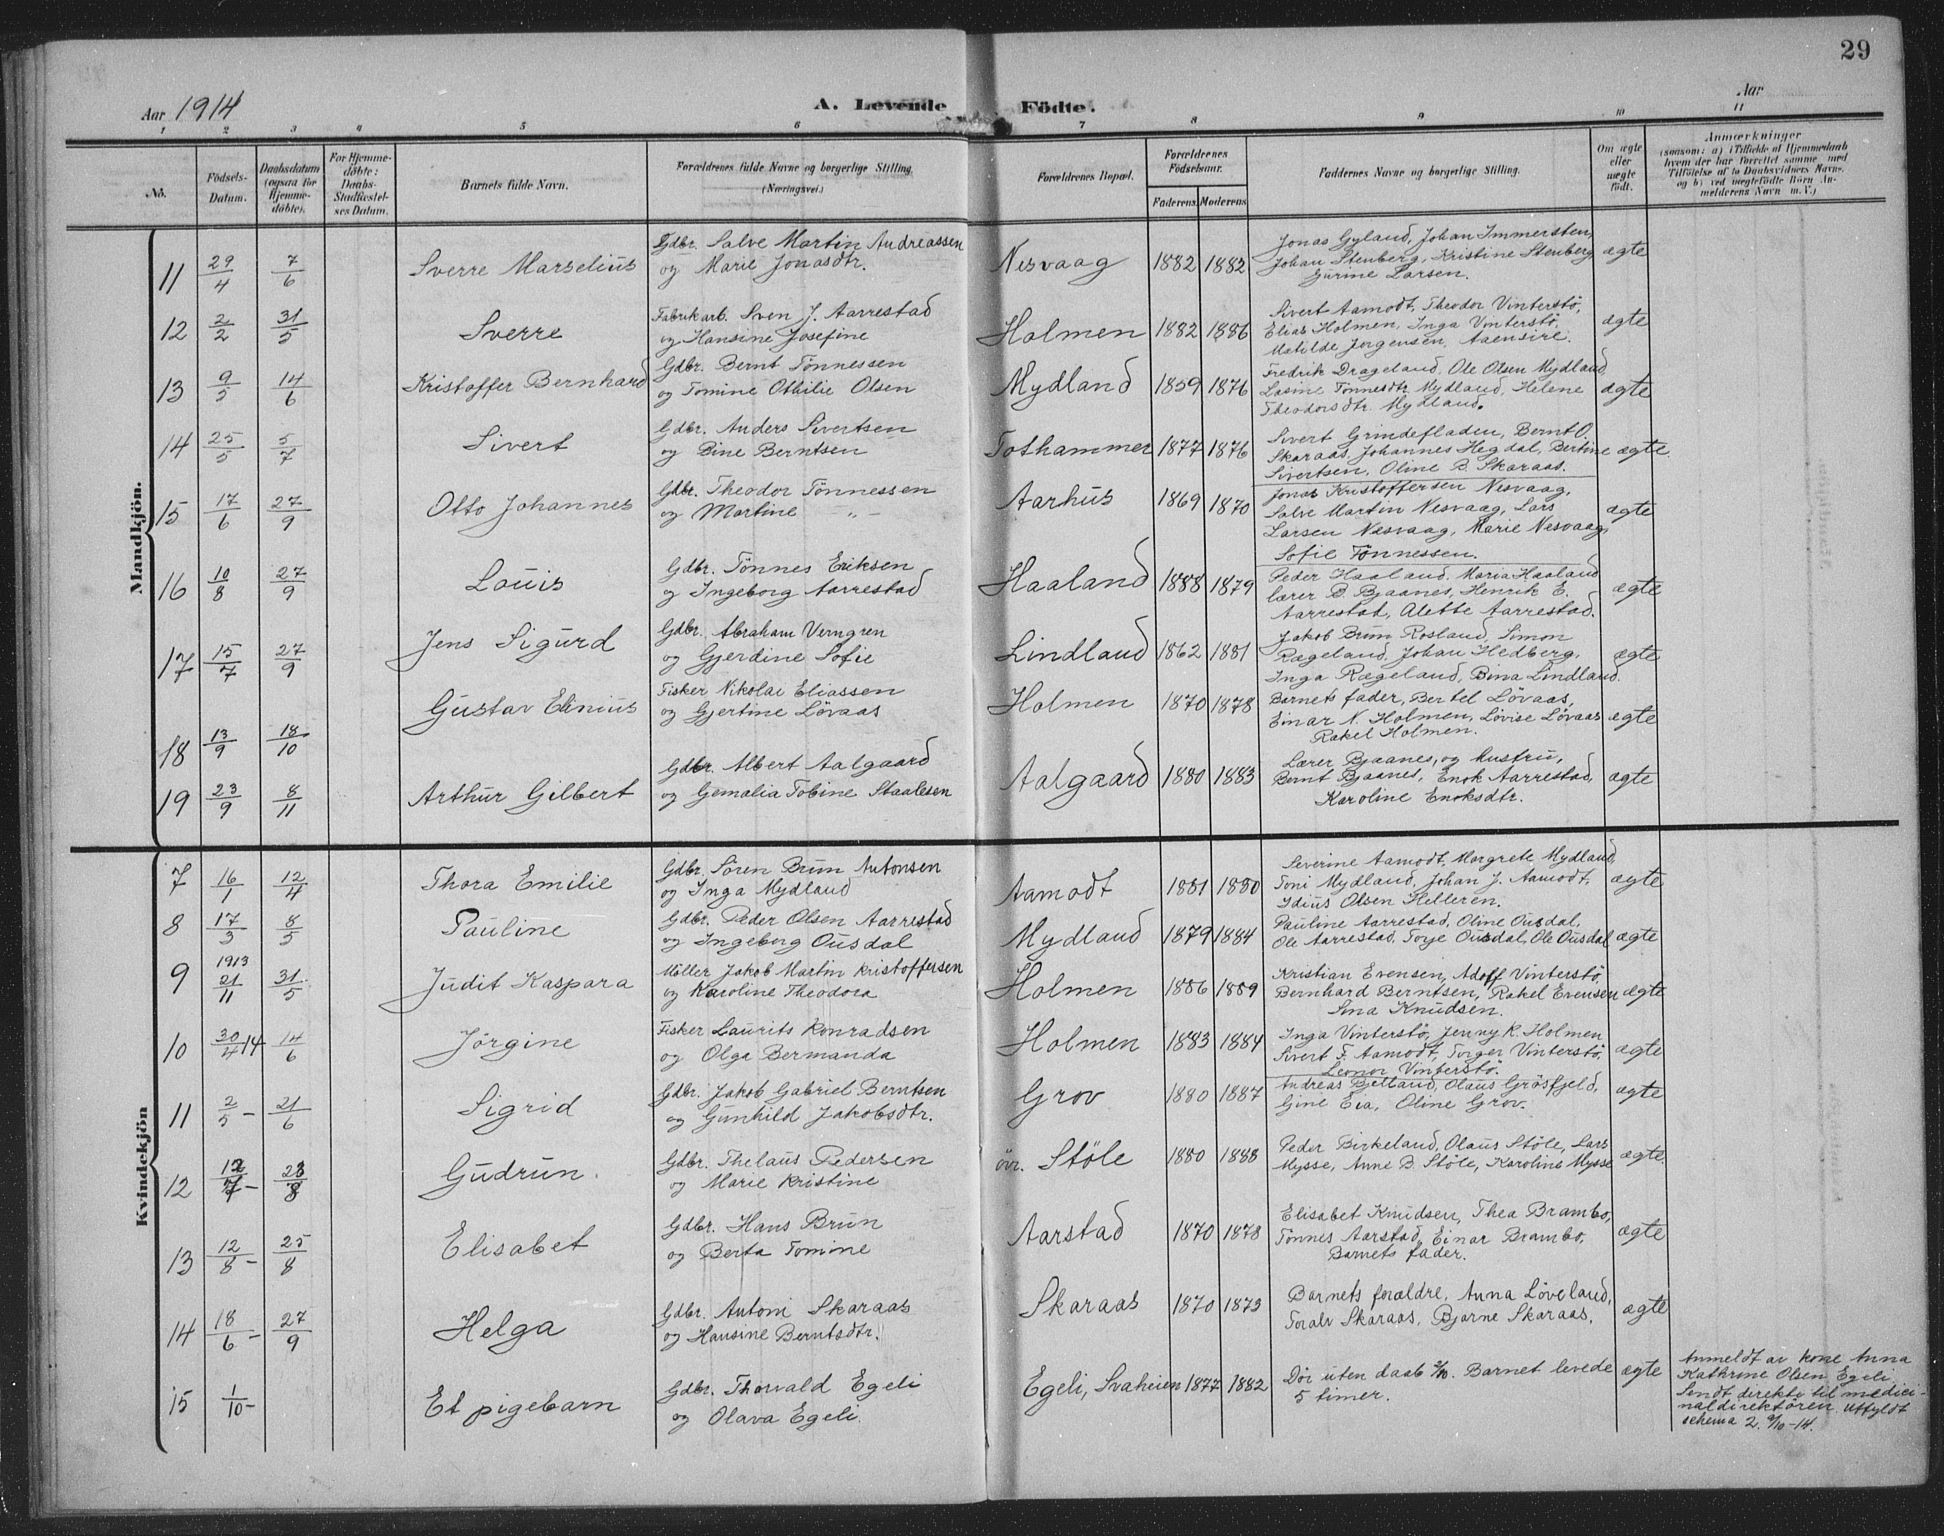 29
Aar 1914
A. Levende Födte.
Aar
1 2 3 4 5 6 7 8 9 10 11
No. Födsels-Datum. Daabsdatum (ogsaa for Hjemme-döbte). For Hjemme-döbte: Daabs-Stadfæstel-ses Datum. Barnets fulde Navn. Forældrenes fulde Navne og borgerlige Stilling. (Næringsvei.) Forældrenes Bopæl. Forældrenes Födselsaar. Faderens. Moderens. Faddernes Navne og borgerlige Stilling. Om ægte eller uægte født. Anmærkninger (saasom: a) i Tilfælde af Hjemmedaab hvem der har forrettet samme med Tilföielse af to Daabsvidners Navne, og b) ved uægtefödte Börn An-melderens Navn m. V.)
Mandkjön.
11 29/4 7/6 Sverre Marselius Gdbr. Salve Martin Andreassen og Marie Jonasdtr. Nesvaag 1882 1882 Jonas Gyland, Johan Immersten, Johan Stenberg, Kristine Stenberg Gurine Larsen. ægte
12 2/2 31/5 Sverre Fabrikarb. Sven J. Aarrestad og Hansine Josefine Holmen 1882 1886 Sivert Aamodt, Theodor Vinterstö, Elias Holmen, Inga Vinterstö, Matilde Jørgensen, Aaensire. ægte
13 9/5 14/6 Kristoffer Bernhard Gdbr. Bernt Tönnessen og Tomine Othilie Olsen Mydland 1859 1876 Fredrik Drageland, Ole Olsen Mydland Lasine Tönnesdtr. Mydland, Helene Theodorsdtr. Mydland. ægte
14 25/5 5/7 Sivert Gdbr. Anders Sivertsen og Bine Berntsen Tothammer 1877 1876 Sivert Grindefladen, Bernt O. Skaraas, Johannes Hegdal, Bertine Sivertsen, Oline B. Skaraas. ægte.
15 17/6 27/9 Otto Johannes Gdbr. Theodor Tönnessen og Martine -„- Aarhus 1869 1870 Jonas Kristoffersen Nesvaag, Salve Martin Nesvaag, Lars Larsen Nesvaag, Marie Nesvaag, Sofie Tönnessen. ægte
16 10/8 27/9 Louis Gdbr. Tönnes Eriksen og Ingeborg Aarrestad Haaland 1888 1879 Peder Haaland, Maria Haaland lærer B. Bjaanes, Henrik E. Aarrestad, Alette Aarrestad. ægte
17 15/7 27/9 Jens Sigurd Gdbr. Abraham Verngren og Gjerdine Sofie Lindland 1862 1881 Jakob Brun Rosland, Simon Rægeland, Johan Hedberg, Inga Rægeland, Bina Lindland. ægte
18 13/9 18/10 Gustav Elinius Fisker Nikolai Eliassen og Gjertine Lövaas Holmen 1870 1878 Barnets fader, Bertel Lövaas, Einar N. Holmen, Lövise Lövaas Rakel Holmen. ægte
19 23/9 8/11 Arthur Gilbert Gdbr. Albert Aalgaard og Gemalia Tobine Staalesen Aalgaard 1880 1883 Lærer Bjaanes, og hustru, Bernt Bjaanes, Enok Aarrestad, Karoline Enoksdtr. ægte
Kvindekjön
7 16/1 12/4 Thora Emilie Gdbr. Sören Brun Antonsen og Inga Mydland Aamodt 1881 1880 Severine Aamodt, Margrete Mydland, Toni Mydland, Johan J. Aamodt, Idius Olsen Helleren. ægte
8 17/3 8/5 Pauline Gdbr. Peder Olsen Aarrestad og Ingeborg Ousdal Mydland 1879 1884 Pauline Aarrestad, Oline Ousdal, Ole Aarrestad, Torje Ousdal, Ole Ousdal ægte
9 1913 21/11 31/5 Judit Kaspara Möller Jakob Martin Kristoffersen og Karoline Theodora Holmen 1886 1889 Kristian Evensen, Adolf Vinterstö Bernhard Berntsen, Rakel Evensen Sina Knudsen. ægte
10 30/4 14 14/6 Jörgine Fisker Laurits Konradsen og Olga Bermanda Holmen 1883 1884 Inga Vinterstö, Jenny K. Holmen Sivert F. Aamodt, Torger Vinterstö, Leonor Vinterstö. ægte
11 2/5 - 21/6 Sigrid Gdbr. Jakob Gabriel Berntsen og Gunhild Jakobsdtr. Grov 1880 1887 Andreas Bjelland, Olaus Grösfjeld, Gine Eia, Oline Grov. ægte
12 12/7 - 23/8 Gudrun. Gdbr. Thelaus Pedersen og Marie Kristine övr. Stöle 1880 1888 Peder Birkeland, Olaus Stöle, Lars Mysse, Anne B. Stöle, Karoline Mysse ægte.
13 12/8 - 25/8 Elisabet Gdbr. Hans Brun og Berta Tomine Aarstad 1870 1878 Elisabet Knudsen, Thea Brambo, Tönnes Aarstad, Einar Brambo, Barnets fader. ægte
14 18/6 - 27/9 Helga Gdbr. Antoni Skaraas og Hansine Berntsdtr. Skaraas 1870 1873 Barnets forældre, Anna Löveland, Toralv Skaraas, Bjarne Skaraas. ægte
15 1/10 - Et pigebarn Gdbr. Thorvald Egeli og Olava Egeli. Egeli, Svaheien 1877 1882 Dör uten daab. Barnet levede 5 timer. ægte Anmeldt av kone Anna Kathrine Olsen Egeli. Sendt direkte til medici-naldirektören utfyldt schema 2. 9/10-14.